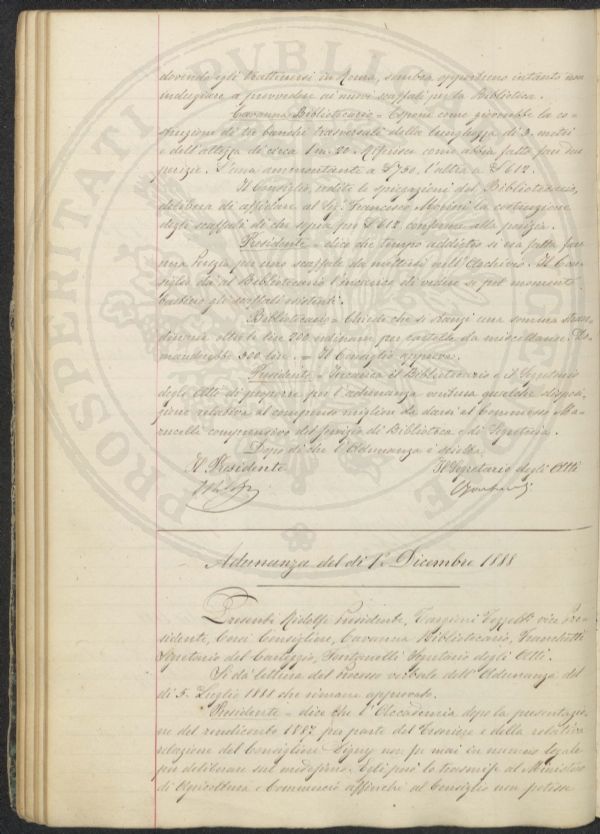 dovendo egli trattenersi in Roma, sembra opportuno intanto non
indugiare a provvedere ai nuovi scaffali per la Biblioteca.
Cavanna Bibliotecario = Espone come gioverebbe la co-
struzione di tre banchi trasversali della lunghezza di 3 metri
e dell'altezza di circa 1m. 20. Riferisce come abbia fatto fare due
perizie. L'una ammontante a £ 730, l'altra a £ 612.
Il Consiglio, udite le spiegazioni del Bibliotecario,
delibera di affidare al Sig. Francesco la costruzione
degli scaffali di che sopra per £ 612, conforme alla perizia.
Presidente = dice che tempo addietro si era fatta fare
una Perizia per uno scaffale da mettersi nell'Archivio. Il Con-
siglio dà al Bibliotecario l'incarico di vedere se pel momento
bastino gli scaffali esistenti.
Bibliotecario = Chiede che si stanzi una somma straor-
dinaria oltre le lire 200 ordinarie per cartelle da miscellanee. Do-
manderebbe 300 lire. = Il Consiglio approva.
Presidente = Incarica il Bibliotecario e il Segretario
degli Atti di proporre per l'adunanza ventura qualche disposi-
zione relativa al compenso migliore da darsi al Commesso Ma-
rucelli comprensivo del servizio di Biblioteca e di Segreteria.
Dopo di che l'Adunanza è sciolta.
Il Presidente Il Segretario degli Atti
Adunanza del dì 1° Dicembre 1888
Presenti Ridolfi Presidente, Targioni Tozzetti vice Pre-
sidente, Consigliere, Cavanna Bibliotecario, Franchetti
Segretario del Carteggio, Fontanelli Segretario degli Atti.
Si dà lettura del processo verbale dell'Adunanza del
dì 5 Luglio 1888 che rimane approvato.
Presidente = dice che l'Accademia dopo la presentazio-
ne del rendiconto 1887 per parte del Tesoriere e della relativa
relazione del Consigliere Digny non fu mai in numero legale
per deliberare sul medesimo. Egli però lo trasmise al Ministero
di Agricoltura e Commercio affinchè al Consiglio non potesse